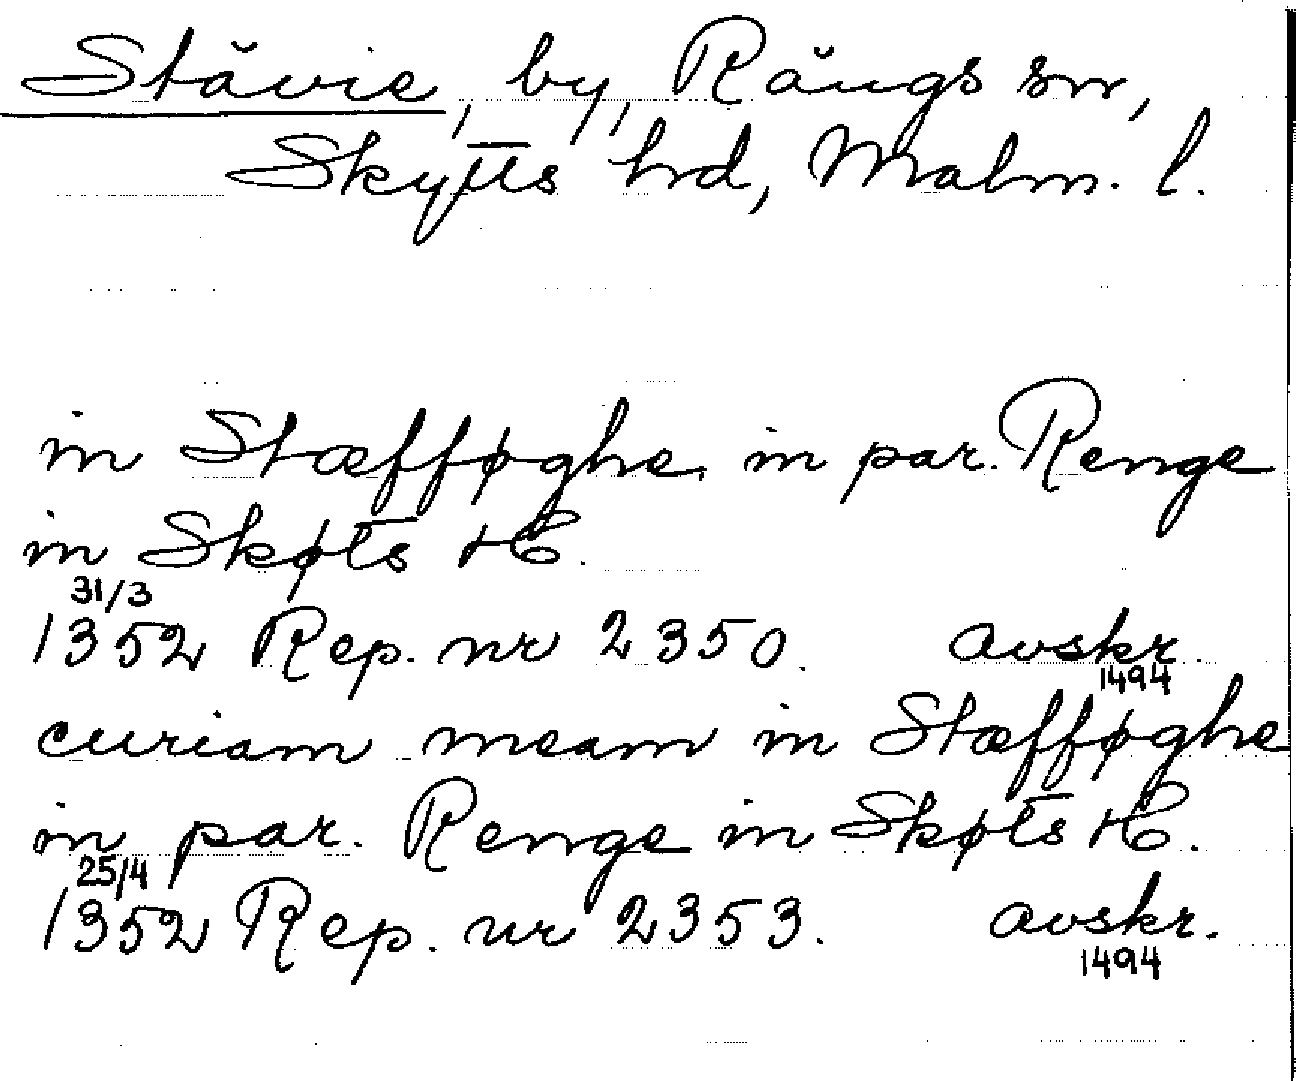 Stävie, by, Rängs sn,
Skytts hd, Malm. l.
in Stæfføghe, in par. Renge
in Skøts H.
31/3
1352 Rep. nr 2350. avskr.
1494
curiam meam in Stæfføghe
in par. Renge in Skøts H.
25/4
1352 Rep. nr 2353. avskr.
1494